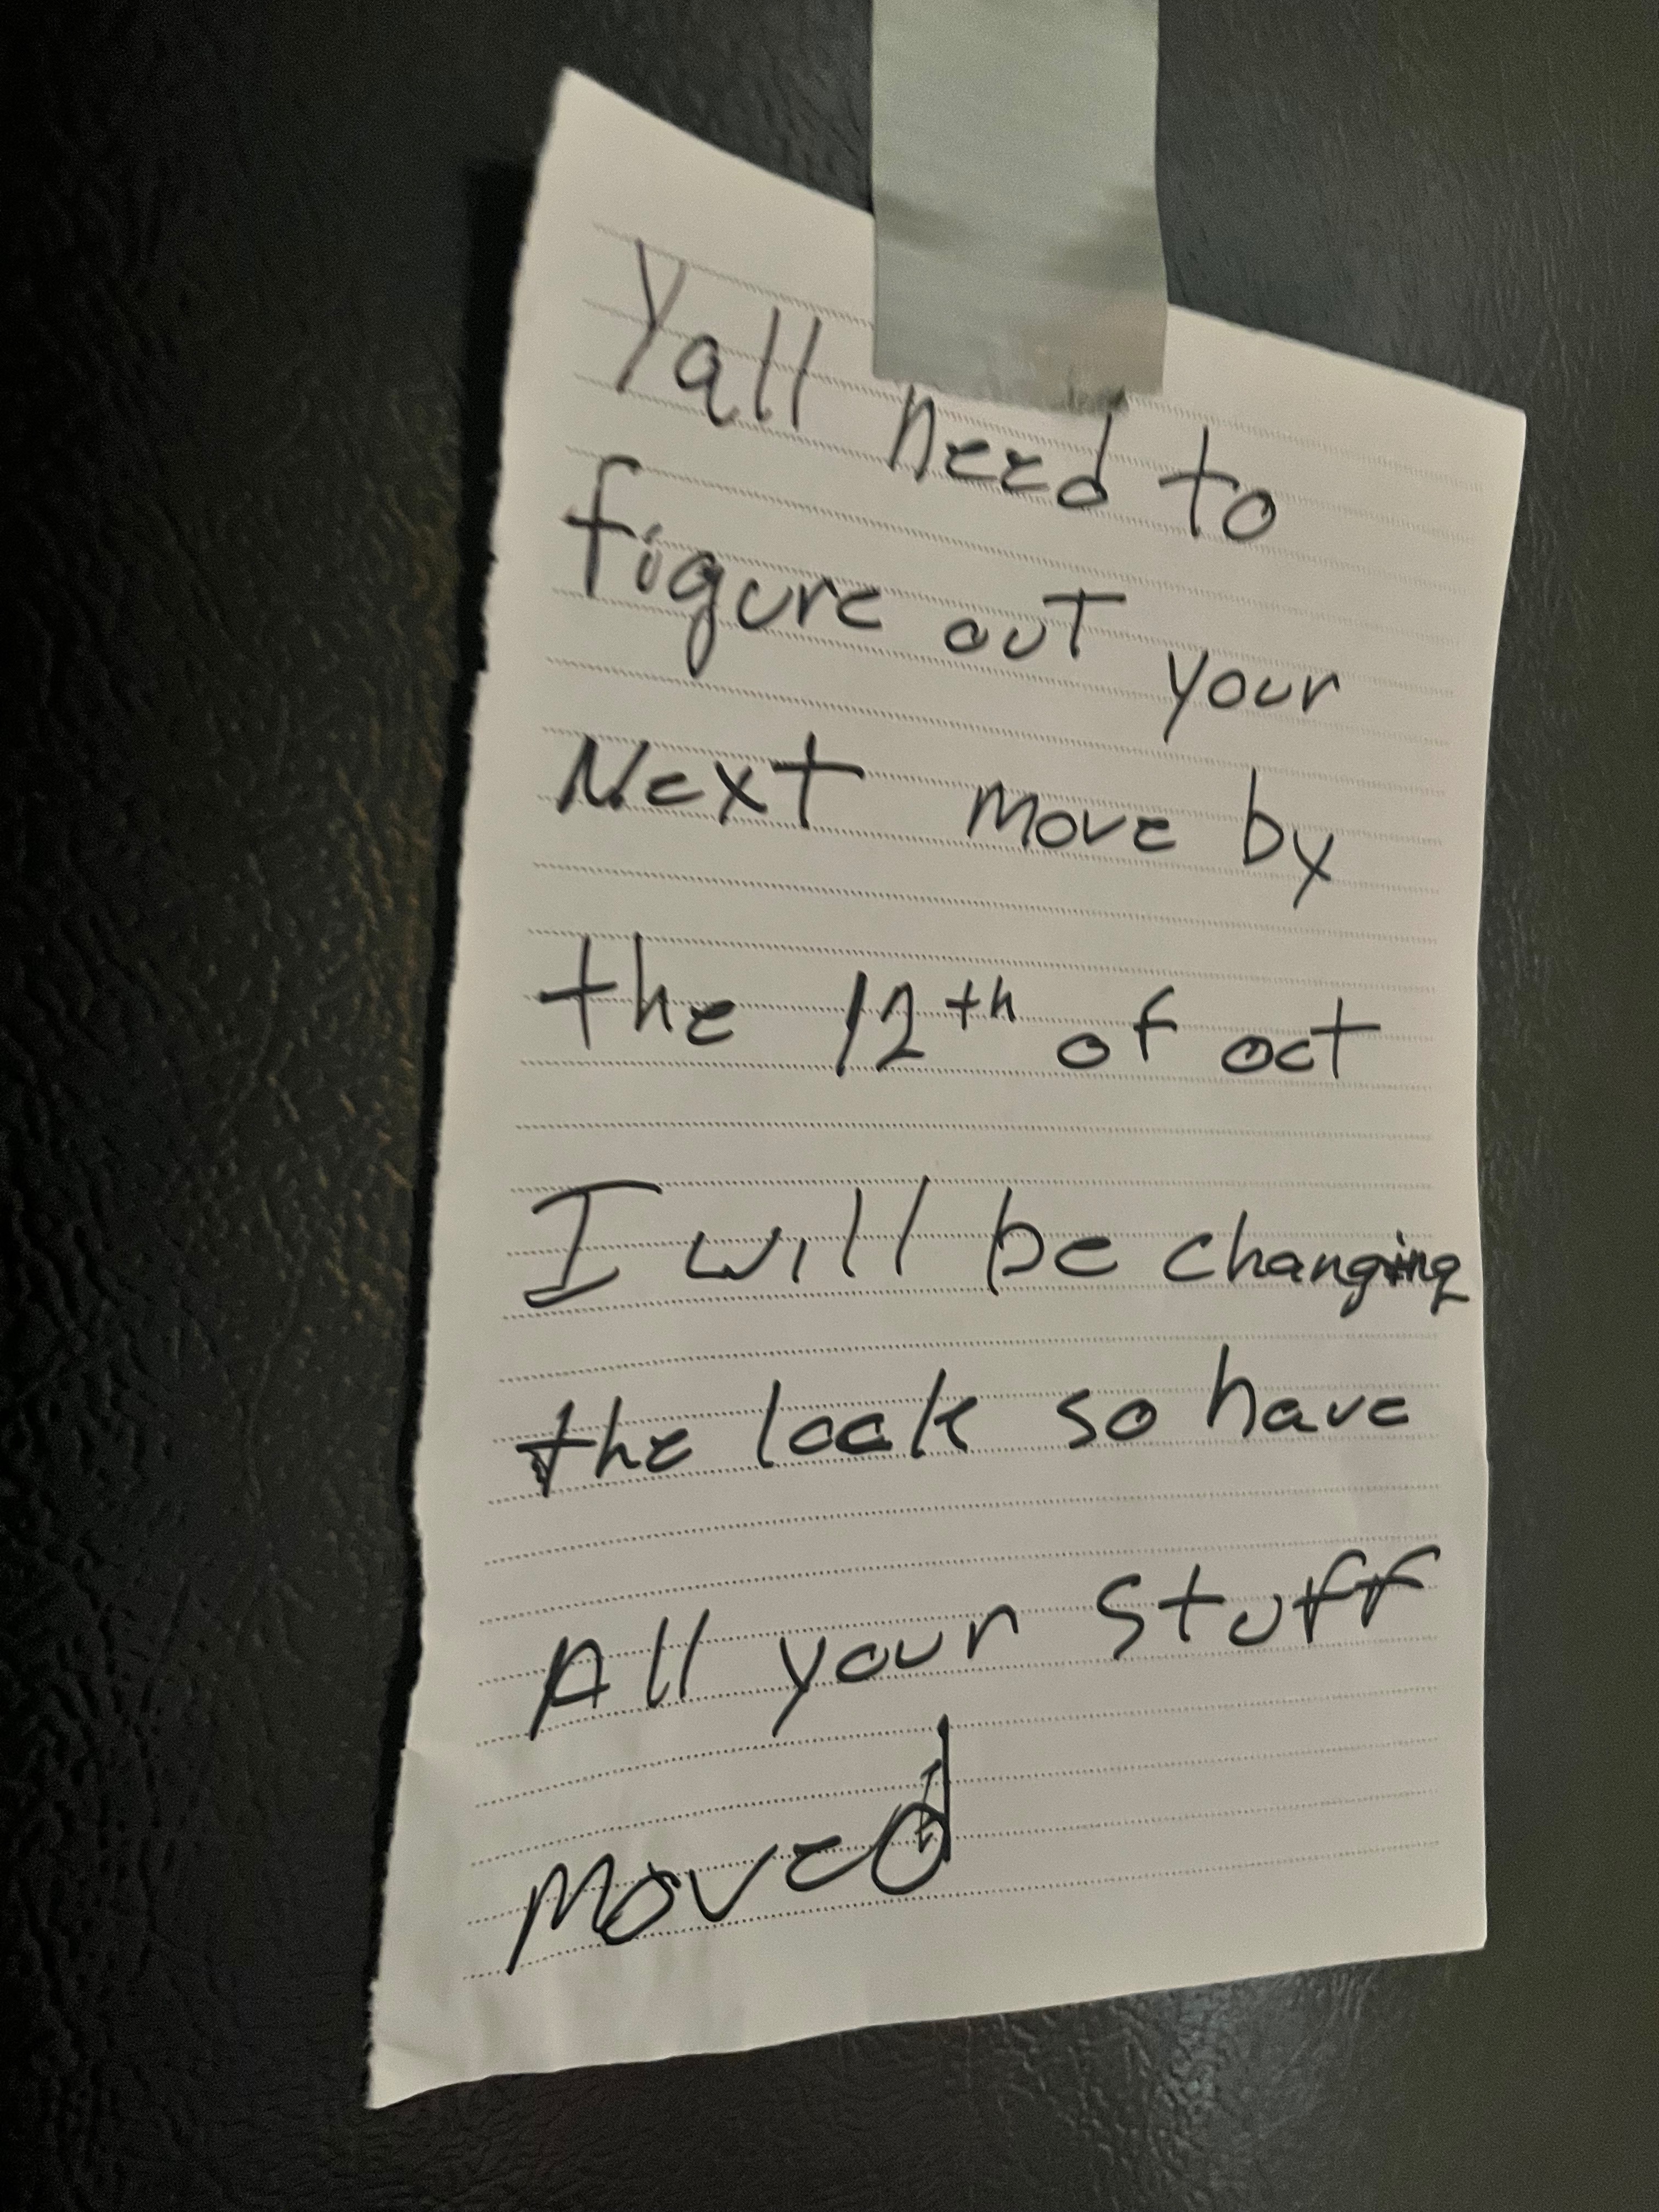 Yall need to
figure out your
Next move by
the 12th of oct
I will be changing
the lock so have
All your stuff
moved